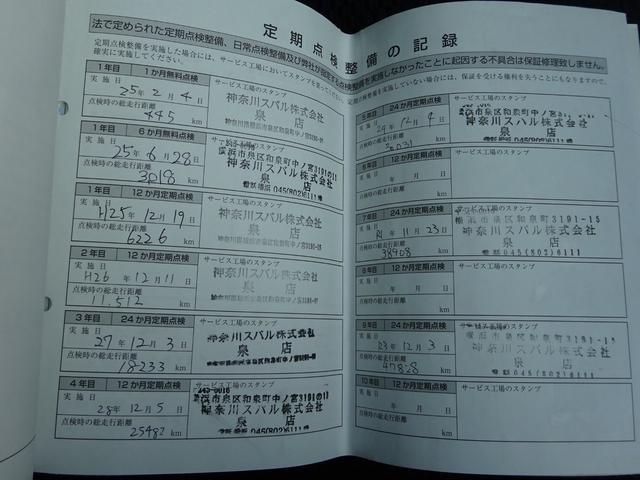 定期点検整備の記録
法で定められた定期点検整備、日常点検整備及び弊社が指定する点検整備を実施しなかったことに起因する不具合は保証修理致しません。
定期点検整備を実施した場合には、サービス工場においてスタンプを
確実に実施してください。
定期点検整備を実施していない場合には、保証を受ける権利を失うこともなりますので、
1年目 1か月無料点検
サービス工場のスタンプ
実施日
25年 2月 4日
神奈川スバル株式会社
泉 店
点検時の総走行距離
445 km
1年目 6か月無料点検
サービス工場のスタンプ
実施日
25年 6月 28日
横浜市泉区和泉町中ノ宮3191の11
神奈川スバル株式会社
泉 店
電話 045(802)6111
点検時の総走行距離
3018 km
1年目 12か月定期点検
サービス工場のスタンプ
実施日
H25年 12月 19日
神奈川スバル株式会社
泉 店
点検時の総走行距離
6226 km
2年目 12か月定期点検
サービス工場のスタンプ
実施日
H26年 12月 11日
神奈川スバル株式会社
泉 店
点検時の総走行距離
11,512 km
3年目 24か月定期点検
サービス工場のスタンプ
実施日
27年 12月 3日
神奈川スバル株式会社
泉 店
点検時の総走行距離
18233 km
4年目 12か月定期点検
サービス工場のスタンプ
実施日
28年 12月 5日
横浜市泉区和泉町中ノ宮3191の11
神奈川スバル株式会社
泉 店
045(802)6111
点検時の総走行距離
25482 km
5年目 24か月定期点検
サービス工場のスタンプ
実施日
29年 12月 4日
神奈川スバル株式会社
泉 店
点検時の総走行距離
km
6年目 12か月定期点検
サービス工場のスタンプ
実施日
年 月 日
点検時の総走行距離
km
7年目 24か月定期点検
サービス工場のスタンプ
実施日
R1年 11月 23日
横浜市泉区和泉町3191-15
神奈川スバル株式会社
泉 店
電話 045(802)6111
点検時の総走行距離
38908 km
8年目 12か月定期点検
サービス工場のスタンプ
実施日
年 月 日
点検時の総走行距離
km
9年目 24か月定期点検
サービス工場のスタンプ
実施日
23年 12月 3日
横浜市泉区和泉町3191-15
神奈川スバル株式会社
泉 店
点検時の総走行距離
47828 km
10年目 12か月定期点検
サービス工場のスタンプ
実施日
年 月 日
点検時の総走行距離
km